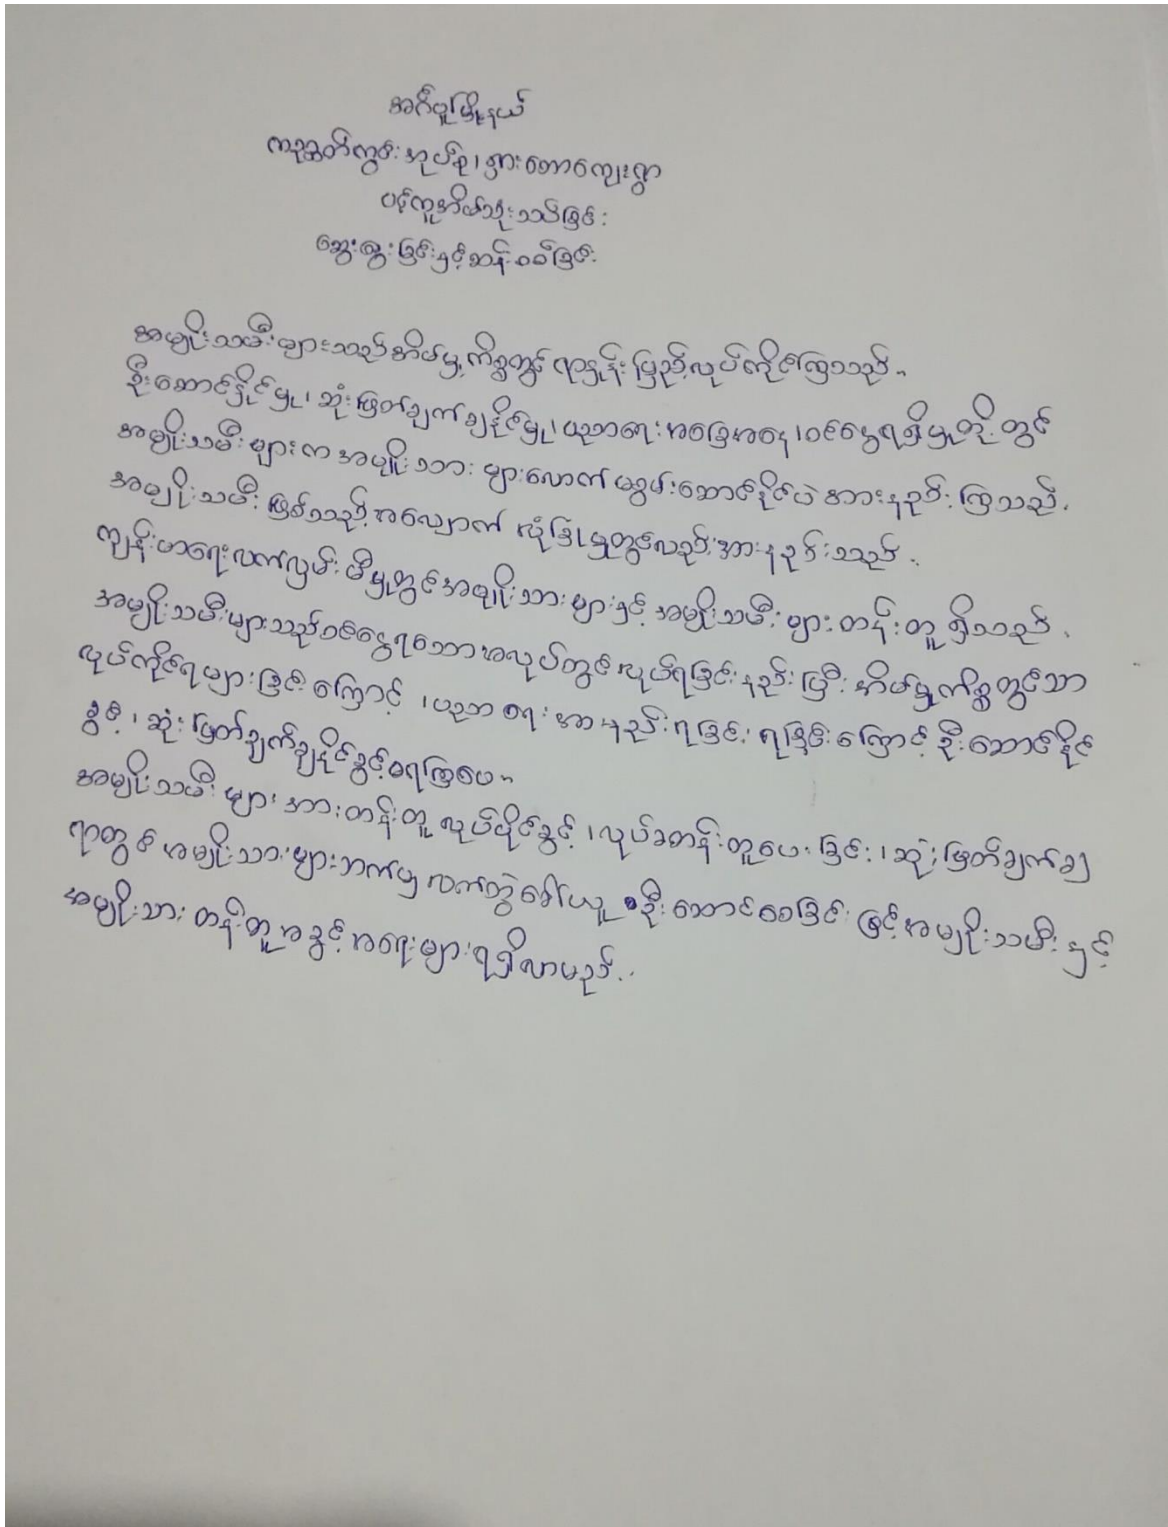 အင်္ဂပူမြို့နယ်
ကညွတ်ကွင်းအုပ်စု၊ အှားတောကျေးရွာ
ပင့်ကူအိမ်သုံးသပ်ခြင်း
ဆွေးနွေးခြင်းနှင့်ဆန်းစစ်ခြင်း
အမျိုးသမီးများသည်အိမ်မှုကိစ္စတွင် ရာနှုန်းပြည့်လုပ်ကိုင်ကြသည်။
ဦးဆောင်နိုင်မှု၊ ဆုံးဖြတ်ချက်ချနိုင်မှု၊ ပညာရေးအခြေအနေ၊ ဝင်ငွေရရှိမှုတို့တွင်
အမျိုးသမီးများက အမျိုးသားများလောက် မစွမ်းဆောင်နိုင်ပဲ အားနည်းကြသည်။
အမျိုးသမီးဖြစ်သည့်အလျောက် လုံခြုံမှုတွင်လည်းအားနည်းသည်။
ကျန်းမာရေးလက်လှမ်းမီမှုတွင်အမျိုးသားများနှင့် အမျိုးသမီးများတန်းတူရှိသည်။
အမျိုးသမီးများသည်ဝင်ငွေရသောအလုပ်တွင်လုပ်ရခြင်းနည်းပြီး အိမ်မှုကိစ္စတွင်သာ
လုပ်ကိုင်ရများခြင်းကြောင့် ၊ ပညာရေးအားနည်းရခြင်း ရခြင်းကြောင့် ဦးဆောင်နိုင်
ခွင့် ၊ ဆုံးဖြတ်ချက်ချနိုင်ခွင့်မရကြပေ။
အမျိုးသမီးများအားတန်းတူလုပ်ပိုင်ခွင့် ၊ လုပ်ခတန်းတူပေးခြင်း ၊ ဆုံးဖြတ်ချက်ချ
ရာတွင် အမျိုးသားများဘက်မှ လက်တွဲခေါ်ယူ ဦးဆောင်စေခြင်းဖြင့်အမျိုးသမီးနှင့်
အမျိုးသားတန်းတူအခွင့်အရေးများရရှိလာမည်။